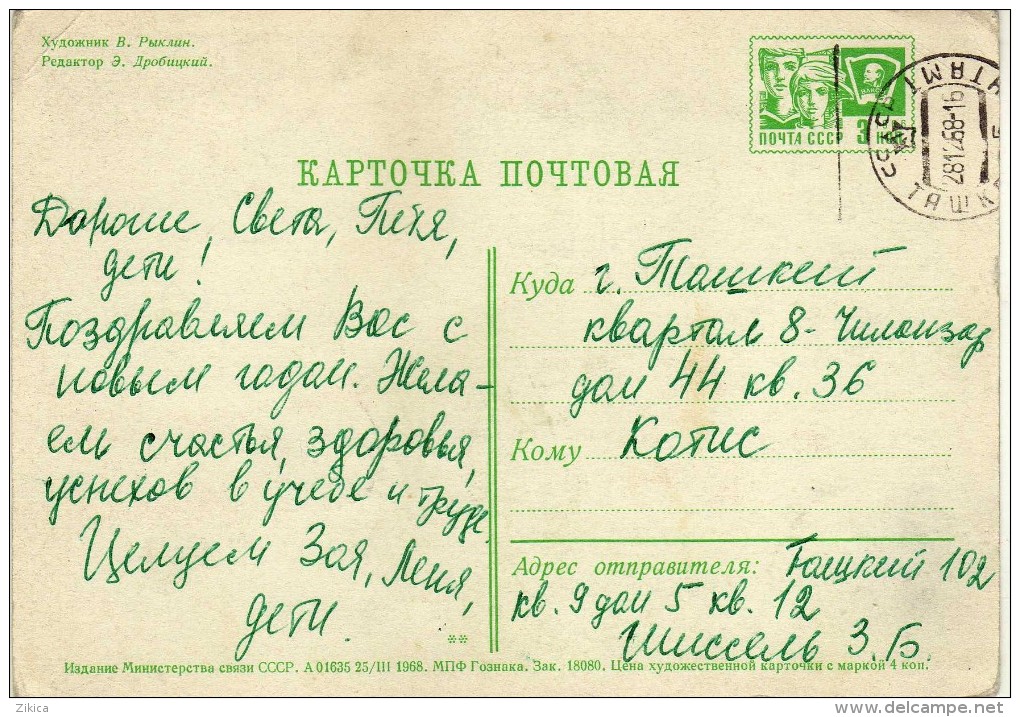 Художник В. Рыклин.
Редактор Э. Дробицкий.
ПОЧТА СССР 3 КОП
СССР ТАШК
28 12 68-16
КАРТОЧКА ПОЧТОВАЯ
Дорогие, Света, Петя,
дети!
Поздравляем Вас с
новым годом. Жела-
ем счастья, здоровья,
успехов в учебе и труде.
Целуем Зоя, Леня,
дети.
**
Куда г. Ташкент
квартал 8-Чиланзар
дом 44 кв. 36
Кому Котис
Адрес отправителя: Ташкент 102
кв. 9 дом 5 кв. 12
Шиссель З.Б.
Издание Министерства связи СССР. А 01635 25/III 1968. МПФ Гознака. Зак. 18080. Цена художественной карточки с маркой 4 коп.
Zikica
delcampe.net